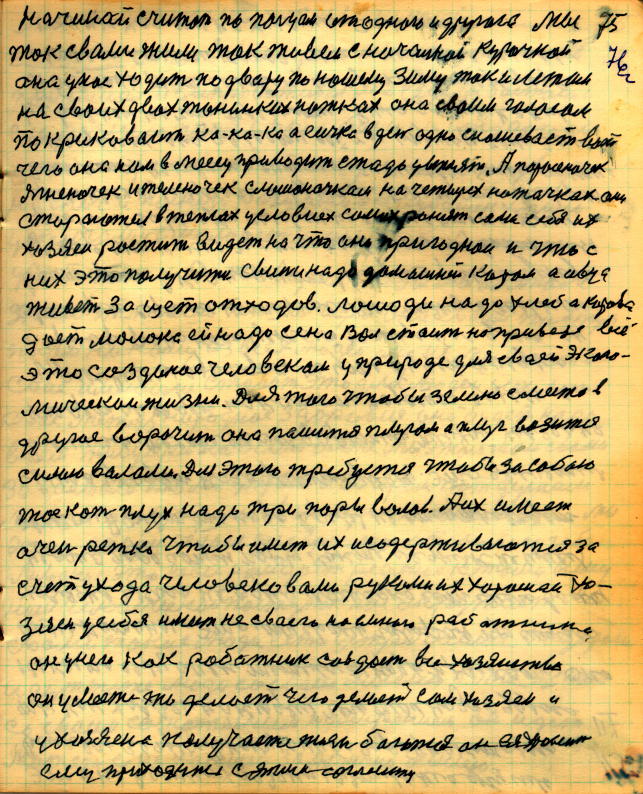 начинай считат по пагуам ат одного и другога Мы 75
так свами жили так живем с началной Курочкой 76г
ана уже ходит по двару по нашему Зиму так и летам
на своих двох тонинких ножках она своим голасом
покрикевает ка-ка-ка а еичка в ден одно сношевает
чего она нам в месец приводит стадо Апороеночек
Ягненочек и теленочек на четырех они
стараются в теплах условиех сохронят сами себя их
хозяен ростит видет на что они пригодной и что с
них это получити Свини надо домашней Кором а авца
живет За щет отходов. Лошади надо хлеба Карова
дает молока ей надо сена Вол стоит на привезе всё
это создоное человекам у природе для сваей Эконо-
мической жизни. Для того чтобы землю с места в
другое ворочит она пашится плугом а плуг возится
силою валами. Для этого требуется чтобы за собою
плух надо три пары волов. А их имеет
очен ретко чтобы имет их и содерживаются за
счет ухода человековами руками их хороший Хо-
зяен у себя имеит не сваего наемного работника
он у него как работник создает все хозяиство
он умеет то делоет чего делоет сам хозяен и
у хозяена получается он
ему приходится с этим согласитц